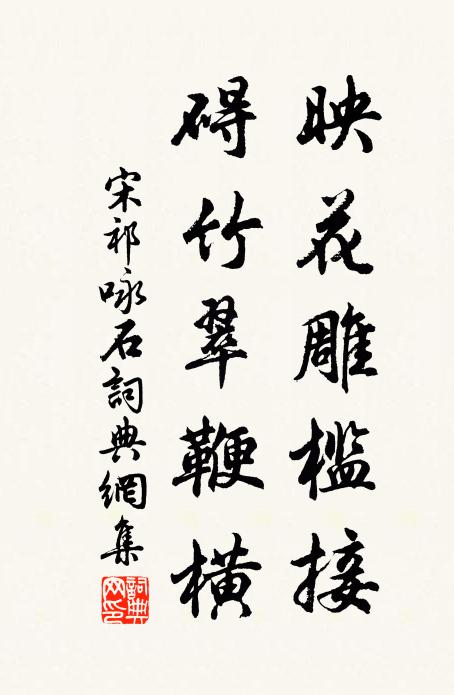 映花雕槛接
碍竹翠鞭横
宋祁咏石詞典網集
詞典網印